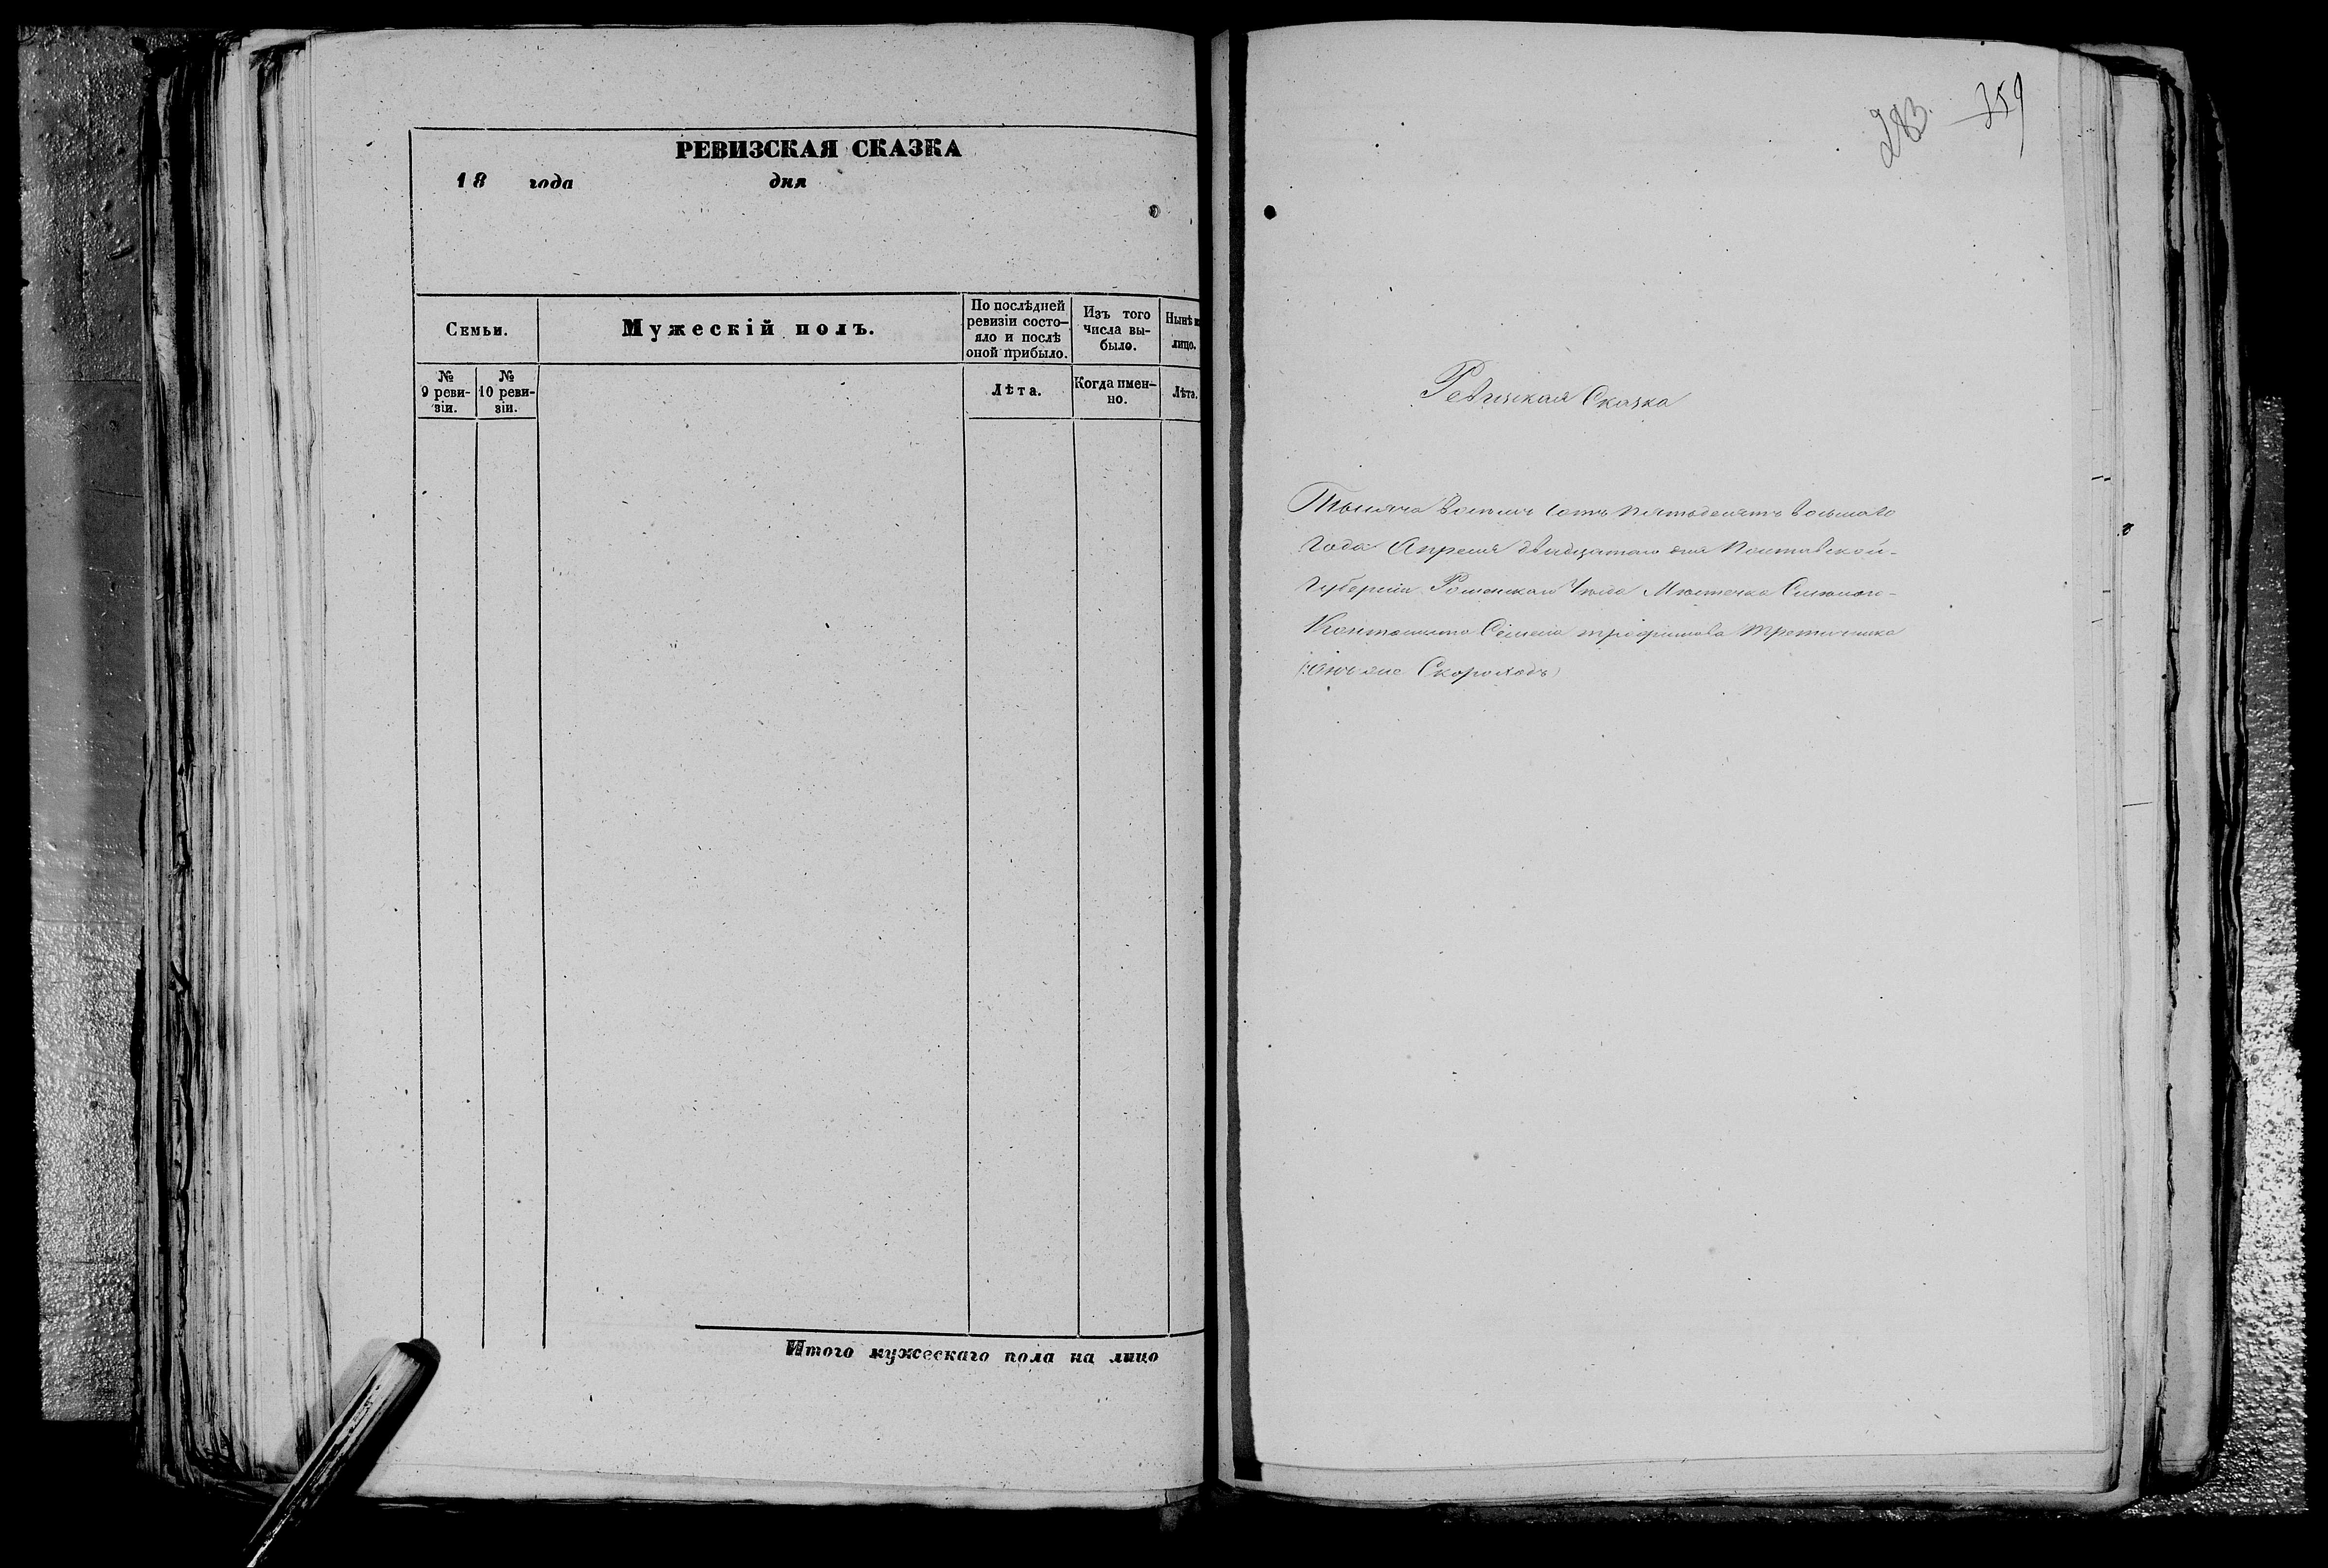 РЕВИЗСКАЯ СКАЗКА
18 года дня
Семьи.
Мужескій полъ.
По послѣдней ревизіи состо-
яло и послѣ оной прибыло.
Изъ того числа вы-
было.
Нынѣ
лицо.
№ 9 реви-
зіи.
№ 10 реви-
зіи.
Лѣта.
Когда имен-
но.
Лѣта.
Итого мужескаго пола на лицо
283. 359
Ревизская Сказка
Тысяча восемь сотъ пятьдесятъ восьмаго
года Апреля двадцатаго дня Полтавской
Губерніи Роменскаго Уезда Местечка Смелого
Семена трофимова
Скороходъ)